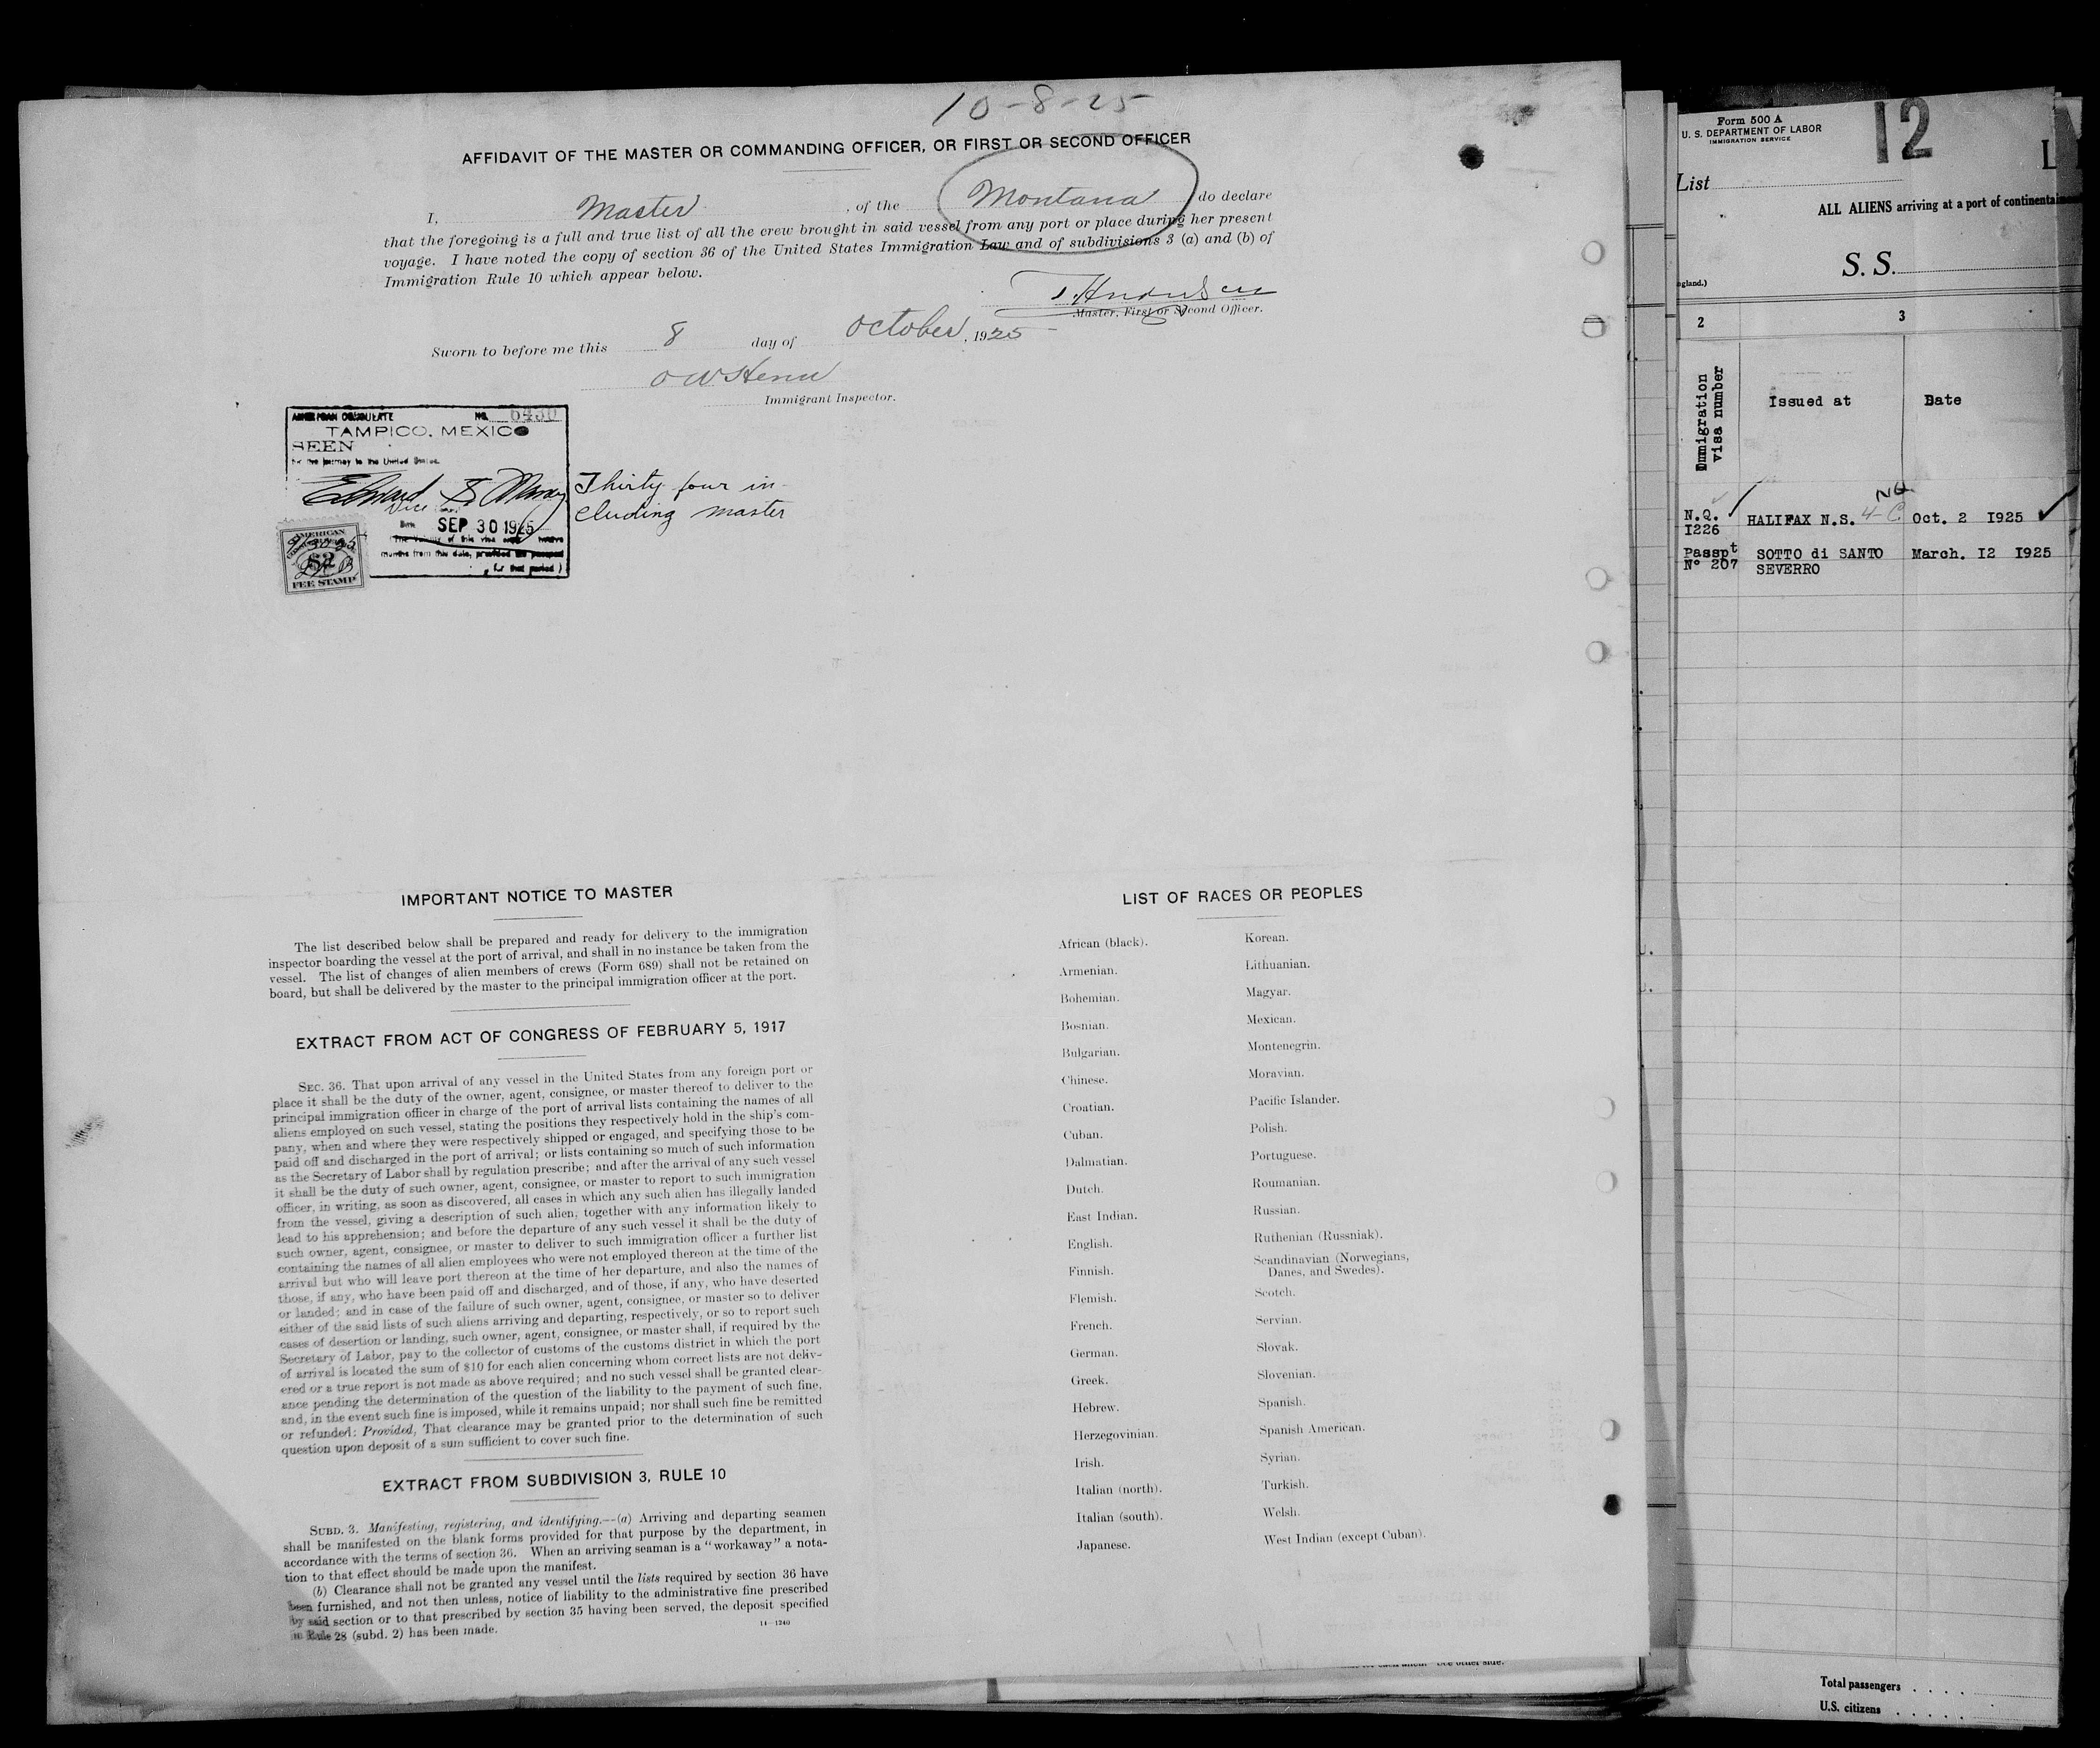 10-8-25
AFFIDAVIT OF THE MASTER OR COMMANDING OFFICER, OR FIRST OR SECOND OFFICER
I, Master, of the Montana do declare
that the foregoing is a full and true list of all the crew brought in said vessel from any port or place during her present
voyage. I have noted the copy of section 36 of the United States Immigration Law and of subdivisions 3 (a) and (b) of
Immigration Rule 10 which appear below.
Master, First or Second Officer.
Sworn to before me this 8 day of October, 1925
Immigrant Inspector.
AMERICAN CONSULATE NO. 6430
TAMPICO, MEXICO
SEEN
for the journey to the United States.
Edward
Vice
Thirty four in-
cluding master
Date SEP 30 1925
The validity of this visa
months from this date, provided the passport
for that period)
AMERICAN
$2
FEE STAMP
IMPORTANT NOTICE TO MASTER
The list described below shall be prepared and ready for delivery to the immigration
inspector boarding the vessel at the port of arrival, and shall in no instance be taken from the
vessel. The list of changes of alien members of crews (Form 689) shall not be retained on
board, but shall be delivered by the master to the principal immigration officer at the port.
EXTRACT FROM ACT OF CONGRESS OF FEBRUARY 5, 1917
SEC. 36. That upon arrival of any vessel in the United States from any foreign port or
place it shall be the duty of the owner, agent, consignee, or master thereof to deliver to the
principal immigration officer in charge of the port of arrival lists containing the names of all
aliens employed on such vessel, stating the positions they respectively hold in the ship's com-
pany, when and where they were respectively shipped or engaged, and specifying those to be
paid off and discharged in the port of arrival; or lists containing so much of such information
as the Secretary of Labor shall by regulation prescribe; and after the arrival of any such vessel
it shall be the duty of such owner, agent, consignee, or master to report to such immigration
officer, in writing, as soon as discovered, all cases in which any such alien has illegally landed
from the vessel, giving a description of such alien, together with any information likely to
lead to his apprehension; and before the departure of any such vessel it shall be the duty of
such owner, agent, consignee, or master to deliver to such immigration officer a further list
containing the names of all alien employees who were not employed thereon at the time of the
arrival but who will leave port thereon at the time of her departure, and also the names of
those, if any, who have been paid off and discharged, and of those, if any, who have deserted
or landed; and in case of the failure of such owner, agent, consignee, or master so to deliver
either of the said lists of such aliens arriving and departing, respectively, or so to report such
cases of desertion or landing, such owner, agent, consignee, or master shall, if required by the
Secretary of Labor, pay to the collector of customs of the customs district in which the port
of arrival is located the sum of $10 for each alien concerning whom correct lists are not deliv-
ered or a true report is not made as above required; and no such vessel shall be granted clear-
ance pending the determination of the question of the liability to the payment of such fine,
and, in the event such fine is imposed, while it remains unpaid; nor shall such fine be remitted
or refunded: Provided, That clearance may be granted prior to the determination of such
question upon deposit of a sum sufficient to cover such fine.
EXTRACT FROM SUBDIVISION 3, RULE 10
SUBD. 3. Manifesting, registering, and identifying.—(a) Arriving and departing seamen
shall be manifested on the blank forms provided for that purpose by the department, in
accordance with the terms of section 36. When an arriving seaman is a "workaway" a nota-
tion to that effect should be made upon the manifest.
(b) Clearance shall not be granted any vessel until the lists required by section 36 have
been furnished, and not then unless, notice of liability to the administrative fine prescribed
by said section or to that prescribed by section 35 having been served, the deposit specified
in Rule 28 (subd. 2) has been made.
14—1240
LIST OF RACES OR PEOPLES
African (black).
Armenian.
Bohemian.
Bosnian.
Bulgarian.
Chinese.
Croatian.
Cuban.
Dalmatian.
Dutch.
East Indian.
English.
Finnish.
Flemish.
French.
German.
Greek.
Hebrew.
Herzegovinian.
Irish.
Italian (north).
Italian (south).
Japanese.
Korean.
Lithuanian.
Magyar.
Mexican.
Montenegrin.
Moravian.
Pacific Islander.
Polish.
Portuguese.
Roumanian.
Russian.
Ruthenian (Russniak).
Scandinavian (Norwegians,
Danes, and Swedes).
Scotch.
Servian.
Slovak.
Slovenian.
Spanish.
Spanish American.
Syrian.
Turkish.
Welsh.
West Indian (except Cuban).
See other side.
Form 500 A
U. S. DEPARTMENT OF LABOR
IMMIGRATION SERVICE
12
L
List
ALL ALIENS arriving at a port of continental
S. S.
ngland.)
2 3
Immigration
visa number
Issued at Date
N.Q. NQ
I226 HALIFAX N.S. 4-C Oct. 2 I925
Passpt SOTTO di SANTO March. I2 I925
Nº 207 SEVERRO
Total passengers . . . .
U.S. citizens . . . . .